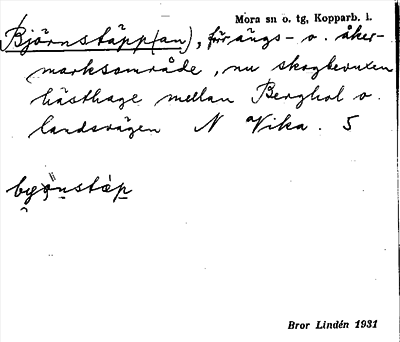 Mora sn o. tg, Kopparb. l.
Björnstäpp(an), förr ängs- o. åker-
marksområde, nu skogbevuxen
hästhage mellan Berghol o.
landsvägen N Vika. 5
Bror Lindén 1931